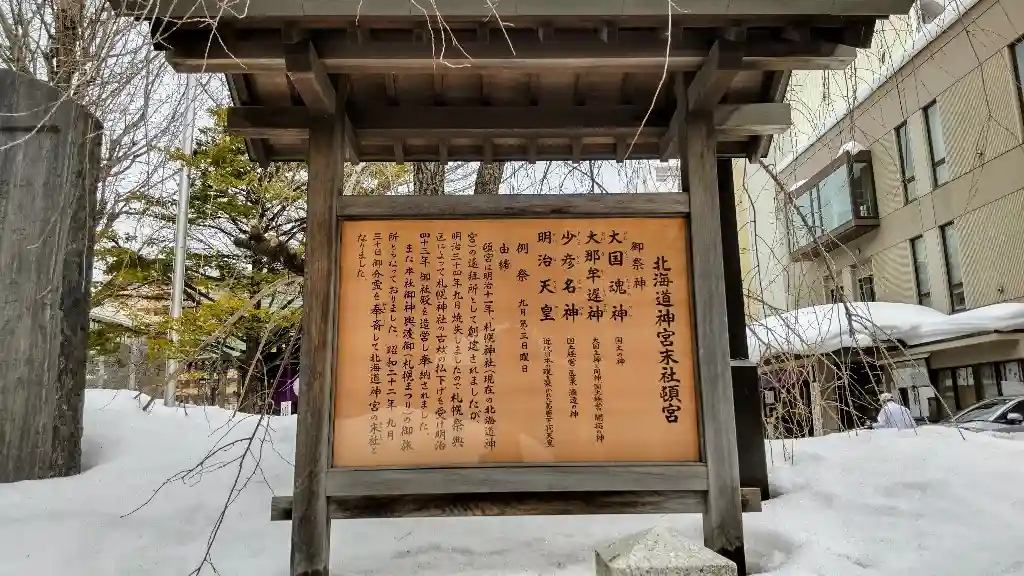 北海道神宮末社頓宮
御祭神
大国魂神 国土の神
大那牟遅神 大国主神と同神 国土経営・開拓の神
少彦名神 国土経営・医薬・酒造の神
明治天皇
例祭 九月第三日曜日
由緒
頓宮は明治十一年、札幌神社(現在の北海道神
宮)の遥拝所として創建されましたが、
明治三十四年九月焼失しましたので札幌祭典
区によって札幌神社の古材の払下げを受け明治
四十二年御社殿を造営し奉納されました。
また本社御神輿渡御(札幌まつり)の御旅
所となっておりました。昭和二十二年九月
三十日御分霊を奉斎して北海道神宮の末社と
なりました。